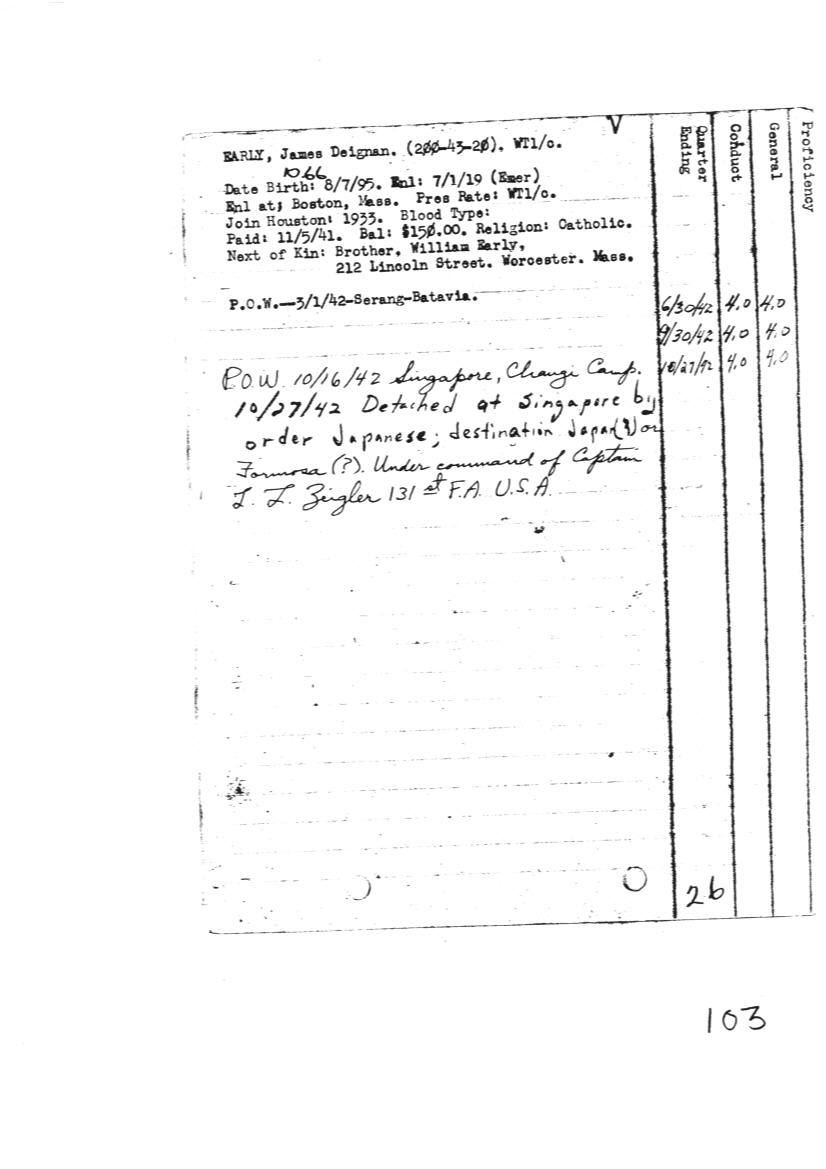 V
EARLY, James Deignan. (2ØØ-43-2Ø). WT1/c.
1066
Date Birth: 8/7/95. Enl: 7/1/19 (Emer)
Enl at; Boston, Mass. Pres Rate: WT1/c.
Join Houston: 1933. Blood Type:
Paid: 11/5/41. Bal: $15Ø.00. Religion: Catholic.
Next of Kin: Brother, William Early,
212 Lincoln Street. Worcester. Mass.
P.O.W.—3/1/42-Serang-Batavia.
P.O.W. 10/16/42 Singapore, Changi Camp.
10/27/42 Detached at Singapore by
order Japanese; destination Japan(?) or
Formosa (?). Under command of Captain
Zeigler 131st F.A. U.S.A.
Quarter Ending
Conduct
General
Proficiency
6/30/42 4.0 4.0
9/30/42 4.0 4.0
10/27/42 4.0 4.0
26
103